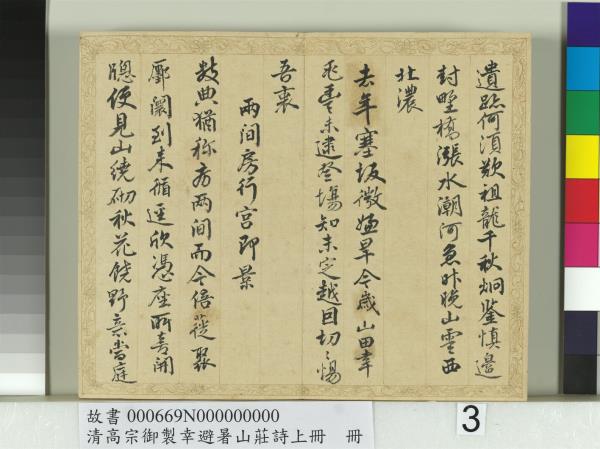 遺跡何須歎祖龍千秋炯鑒慎邊
封野橋漲水潮河急昨晚山雲西
北濃
去年塞坂微嫌旱今歲山田幸
登塲知未定越因切〻惕
吾衷
兩間房行宮即景
數典猶稱房兩間而今倍蓰聚
廛闤到來循迳欣憑座所喜開
窗便見山繞砌秋花饒野意當庭
故書 000669N000000000
清高宗御製幸避暑山莊詩上冊 冊
3